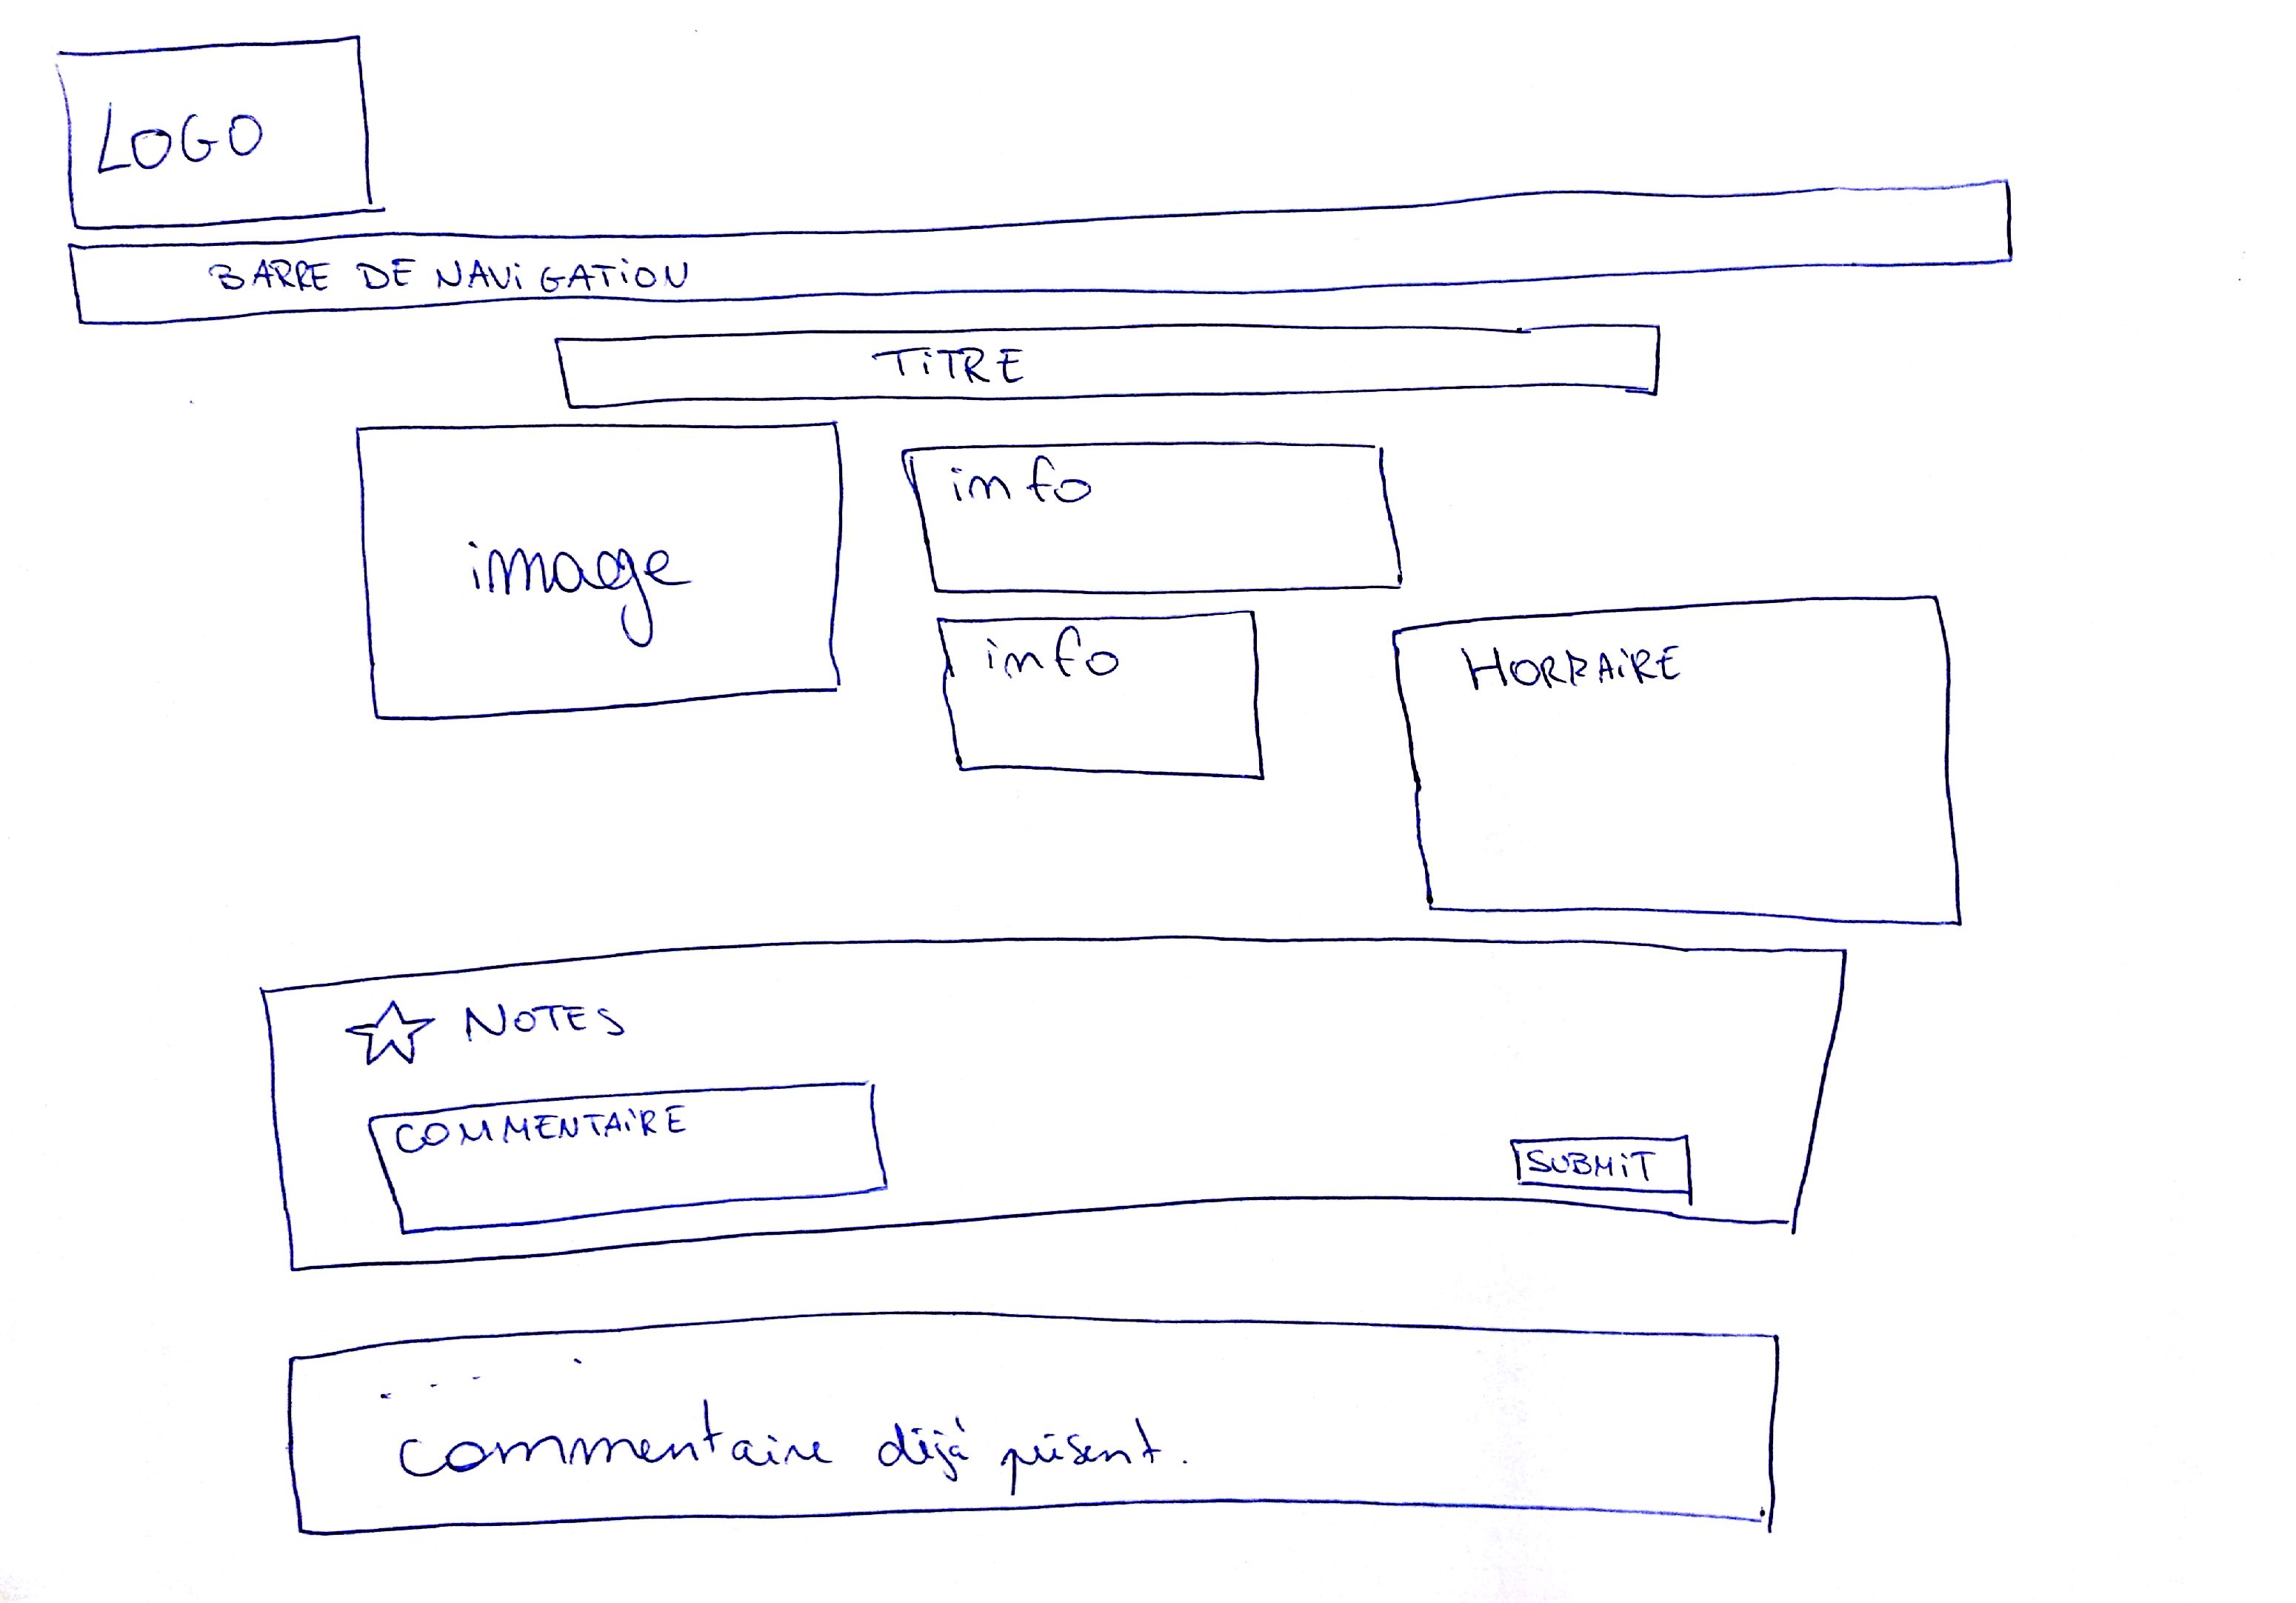 LOGO
BARRE DE NAViGATiON
TiTRE
image
info
info
HORRAiRE
NOTES
COMMENTAiRE
SUBMiT
commentaire déjà présent.